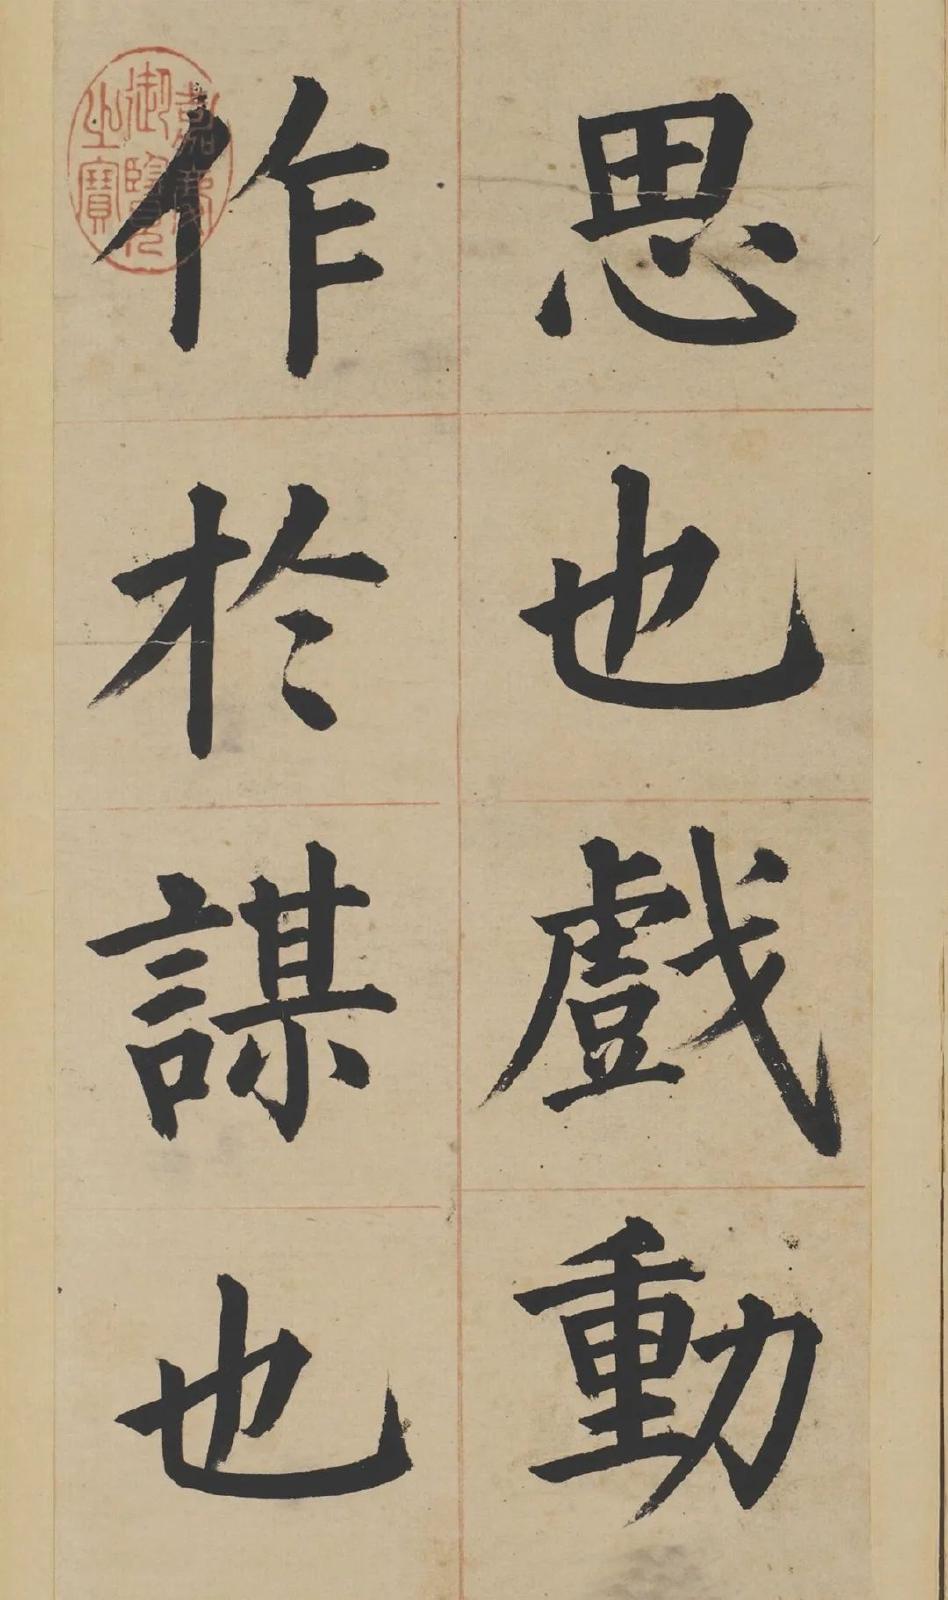 思也戲動
作於謀也
嘉慶
御覽
之寶